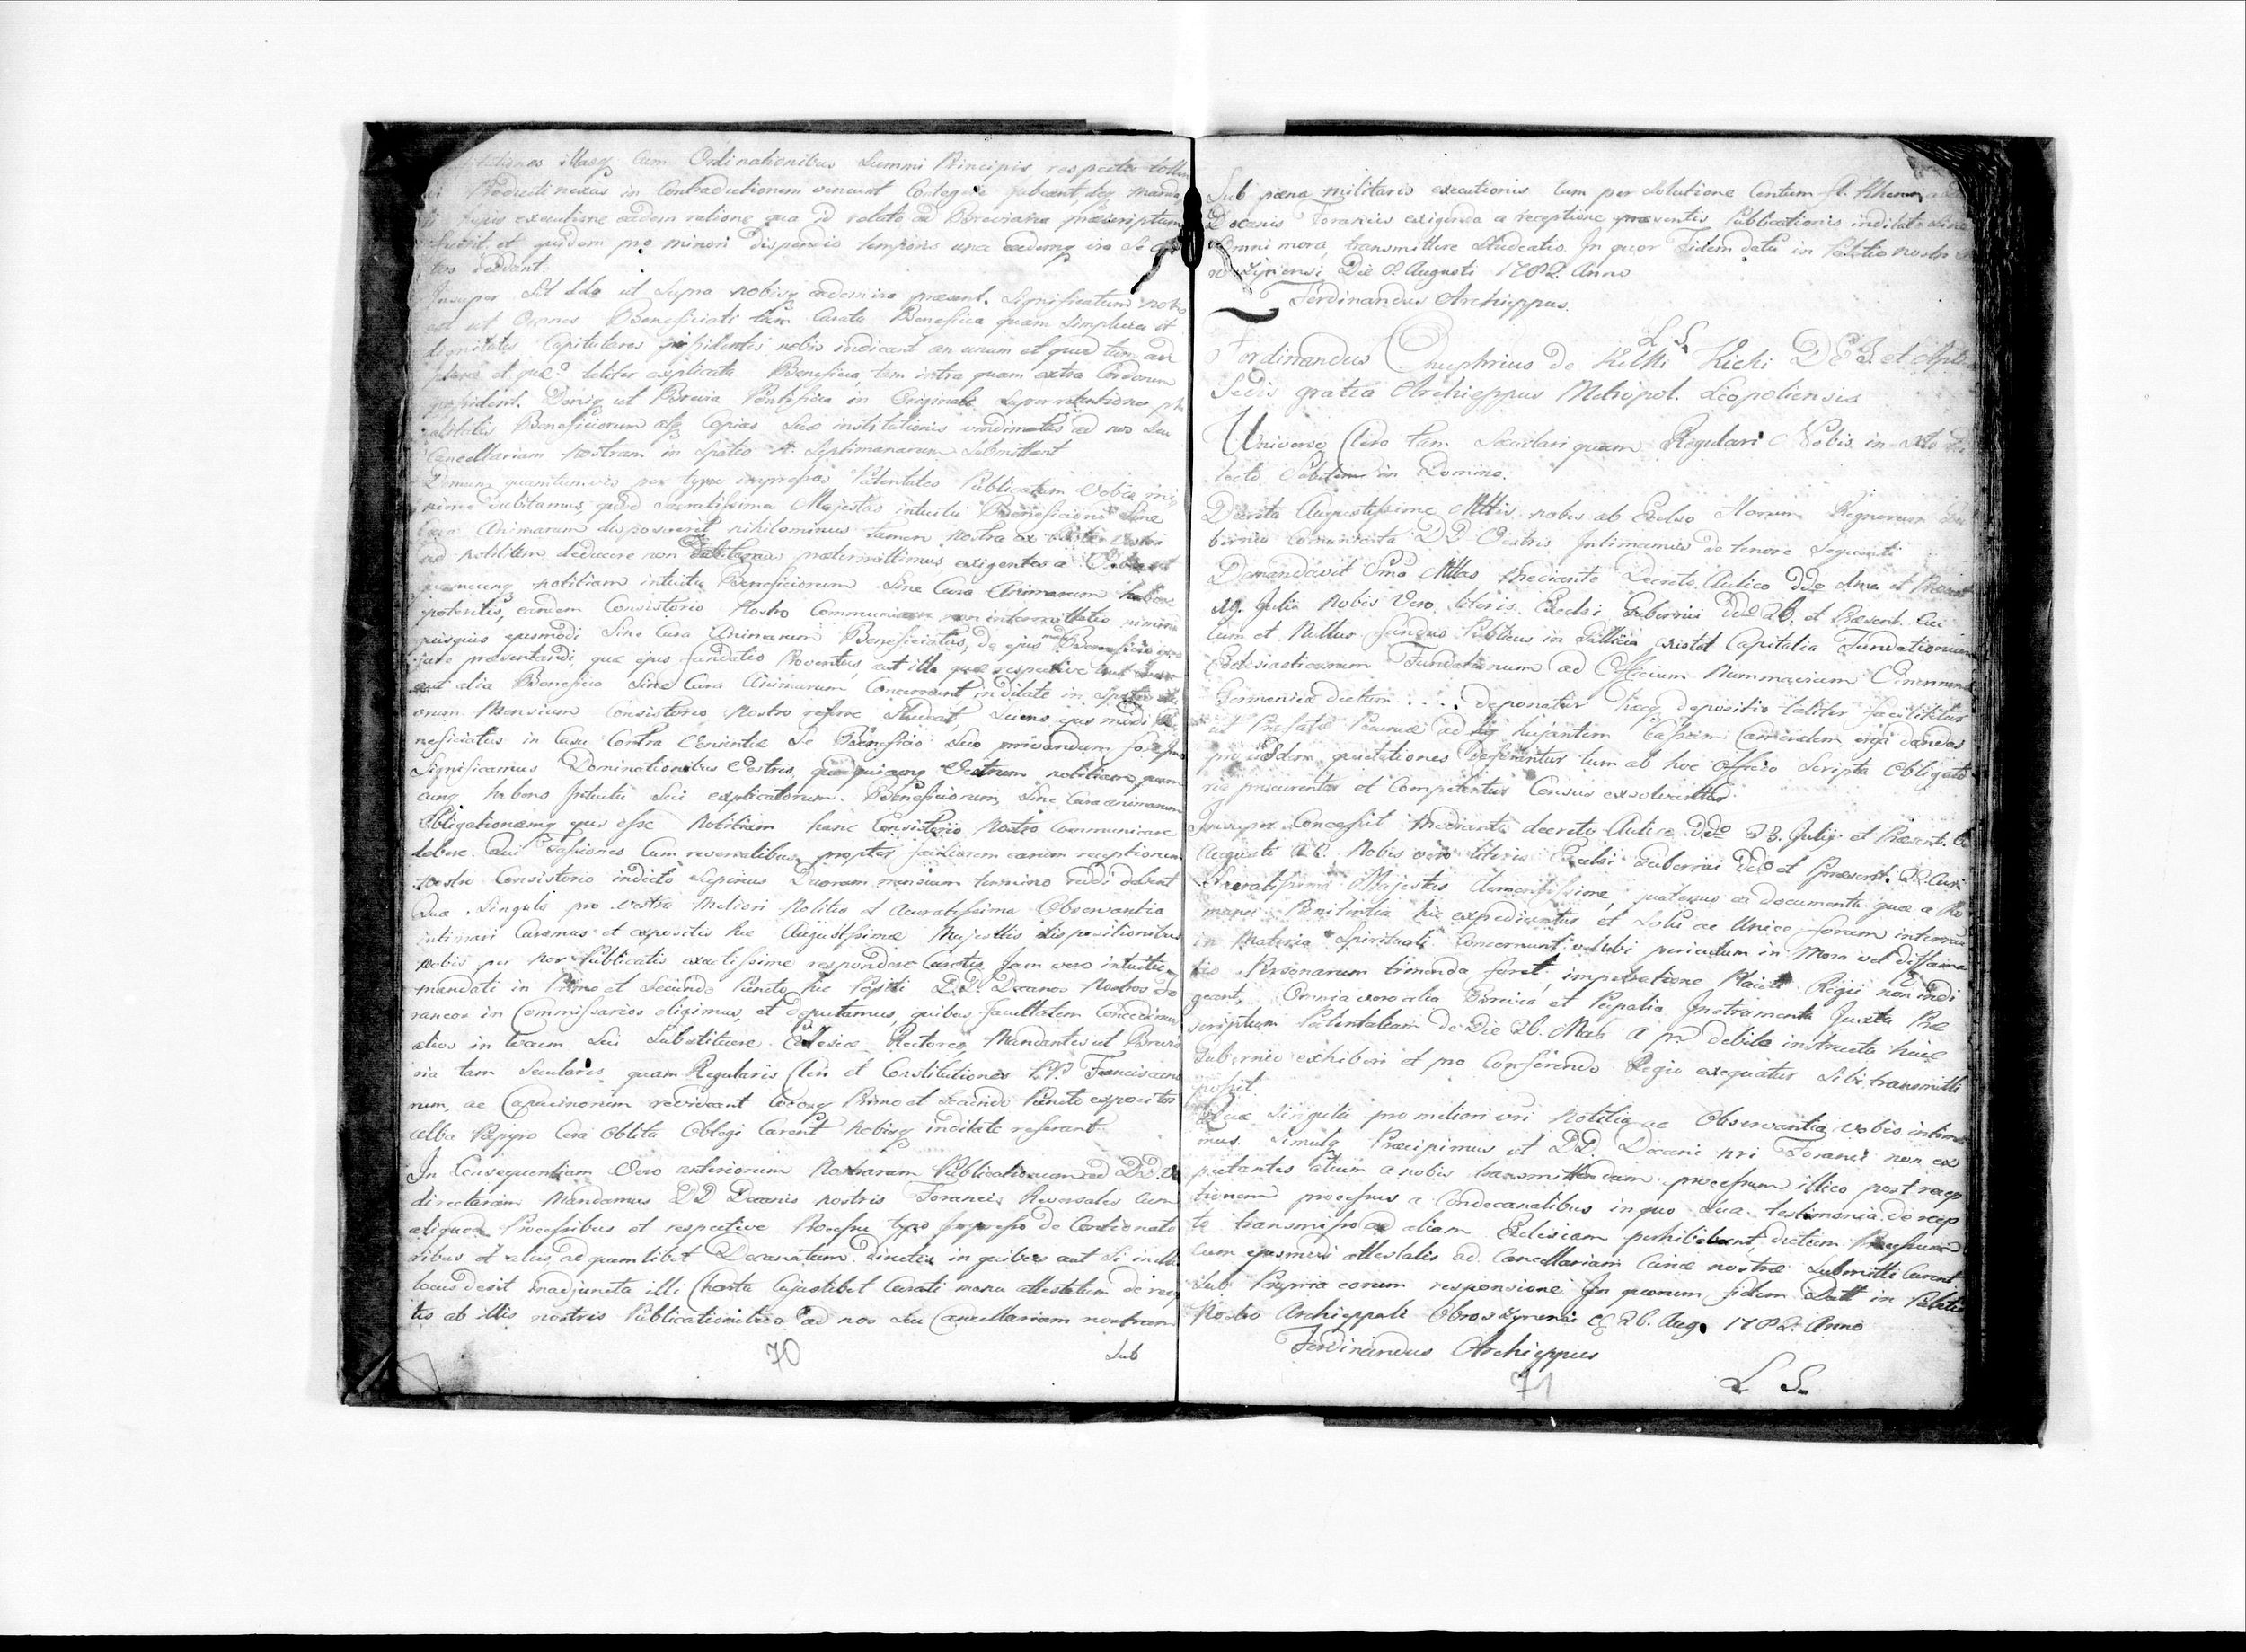 illasq cum Ordinationibus Summi Principis respectu
nexus in Contradictionem veniunt
executione eadem ratione qua id relate ad Breviaria præscriptum
fuerit, et quidem pro minori dispendio temporis una eademq
tos reddant.
Insuper ut supra nobisq eadem præsent. Significatum
est ut Omnes Beneficiati tam Curata Beneficia quam Simplicia et
dignitates Capitulares possidentes nobis indicent an unum et quod tum an
plura et quæ taliter explicata Beneficia, tam intra quam extra Cordonum
possident. Deniq ut Brevia Pontificia in Originali super retentione
Beneficiorum Copias suæ institutionis vidimatas ad nos seu
Cancellariam Nostram in Spatio 4. Septimanarum Submittant
Demum quantumvis per typo impressas Patentales Publicatum Vobis
nime dubitamus, quid Sacratissima Majestas intuitu Beneficiorum Sine
Cura Animarum disposuerit nihilominus tamen nostra ex parte
ad notitiam deducere non prætermittimus, exigentes a
notitiam intuitu Beneficiorum Sine Cura Animarum habere
poteritis, eandem Consistorio Nostro Communicare non intermittatis nimirum
quisquis ejusmodi Sine Cura Animarum Beneficiatus, de ejus Beneficio
jure præsentandi, quæ ejus fundatio Proventus, aut illa quæ respective
aut alia Beneficia Sine Cura Animarum Concernunt, indilate in Spatio
orum Mensium Consistorio Nostro referre Studeat, Sciens ejus modi Be
neficiatus in Casu Contra Venientiæ Se Beneficio Suo privandum
Significamus Dominationibus Vestris, Vestrum notitiam quam
cunq habens Intuitu Sui explicatorum Beneficiorum, Sine Cura animarum
Obligationemq ejus esse Notitiam hanc Consistorio Nostro Communicare
debere. Qui Fassiones Cum reversalibus, propter faciliorem earum receptionem
nostro Consistorio indicto Superius Duorum mensium termino debent
Quæ Singula pro vestra Meliori Notitia et Accuratissima Observantia
intimari Curamus et expositis hic Augustissimæ Majestatis dispositionibus
vobis per Nos Publicatis exactissime respondere Curetis. Jam vero intuitu
mandati in Primo et Secundo Puncto hic Positi D.D. Decanos Nostros Fo
raneos in Commissarios eligimus, et deputamus, quibus facultatem Concedimus
alios in locum Sui Substituere Ecclesiæ Rectores, Mandantes ut Brevia
ria tam Secularis quam Regularis Cleri et Constitutiones P.P. Franciscano
rum, ac Capucinorum revideant locaq Primo et Secundo Puncto expositos
alba Papyro Cera Oblita Oblegi Curent Nobisq indilate referant.
In Consequentiam Vero anteriorum Nostrarum Publicationum ad D.D. V.
directarum Mandamus DD Decanis nostris Foraneis Reversales Cum
Processibus et respective Processu typo impresso de Concionato
ribus et aliis ac quemlibet Decanatum directis in quibus aut Si in illis
locus desit inadjuncta illi Charta Cujuslibet Curati manu attestatum de recep
tis ab illis nostris Publicationibus ad nos Seu Cancellariam nostram
70
Sub
Sub pæna militaris executionis tum per Solutione Centum fl. Rhenen
Decanis Foraneis exigenda a receptione præsentis Publicationis indilate Sine
Omni mora, transmittere Studeatis. In quor Fidem datu in Palatio nostro
Die 8 Augusti 1782. Anno
Ferdinandus Archieppus.
L. S.
Ferdinandus Onuphrius de Kitki Kicki D E S. et
Sedis gratia Archieppus Metropol. Leopoliensis
Universo Clero tam Sæculari quam Regulari Nobis in Xto Di
lecto Salutem in Domino.
Decreta Augustissimæ Mttis nobis ab Excelso Horum Regnorum Gu
bernio communicata DD Vestris Intimamus de tenore Sequenti
Demandavit Sma Mttas Mediante Decreto Aulico
29. Julii Nobis Vero literis Excelsi Gubernii Ddo 26. et Præsent.
cum et Nullus fundus Publicus in Gallicia existat Capitalia Fundationum
Ecclesiasticarum Fundationum ad Officium Nummarium
Germanice dictum . . . . deponatur hæcq depositio taliter facilitetur
ut Præfatæ Pecuniæ ad hujatem Cassam Cameralem erga dandas
quietationes deferantur tum ab hoc Officio Scripta Obligato
ria procurentur et Competentur Census exsolvantur.
Insuper Concessit Mediante decreto Aulico Ddo 23. Julij et Præsent.
Augusti a. c. Nobis vero literis Excelsi Gubernii Ddo et Præsent. 22.
Sacratissima Majestas clementissime, quatenus ea documenta quæ a Ro
mana Penitentia hic expediuntur et Solu ac Unice forum internu
in Materia Spirituali Concernunt, ubi periculum in Mora vel diffama
tio Personarum timenda foret, impetratione Placiti Regii non indi
geant, Omnia vero alia Brevia et Papalia Instrumenta Juxta Præ
scriptum Patentalium de Die 26. Martii a pr debite instructa huic
Gubernio exhiberi et pro Conferendo Regio exequatur Sibi transmitti
possit.
Quæ Singula pro meliori vri Notitia ac Observantia Vobis intima
mus. Simulq Præcipimus ut DD. Decani nri Foranei non ex
pectantes alium a nobis transmittendam processum illico post recep
tionem processus a Condecanalibus in quo Sua testimonia de recep
to transmisso ad aliam Ecclesiam perhibebunt, dictum Processum
cum ejusmodi attestatis ad Cancellariam Curiæ nostræ Submitti Curent
Sub Propria eorum responsione. In quorum fidem Datt in Palatio
Nostro Archieppali Obroszynensi 26. Aug. 1782. Anno
Ferdinandus Archieppus
L S.
71